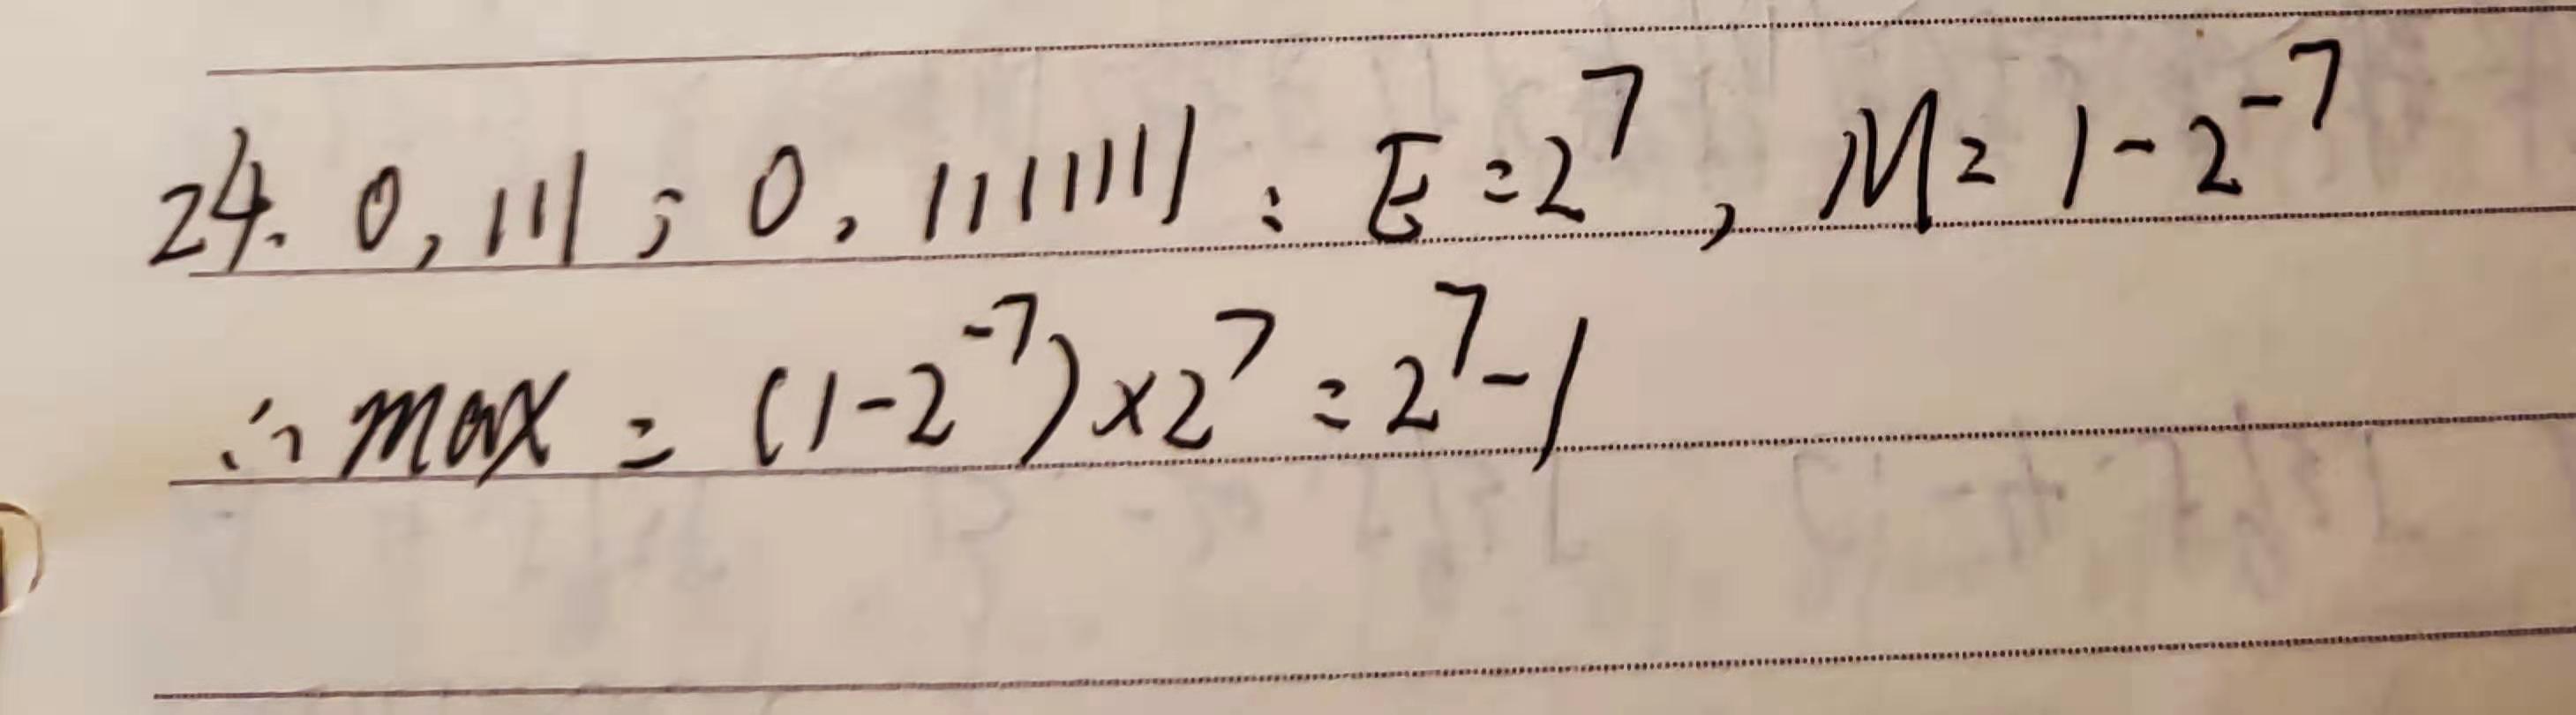 24. 0,111;0,1111111:E=2⁷,M=1-2⁻⁷
∴max=(1-2⁻⁷)×2⁷=2⁷-1